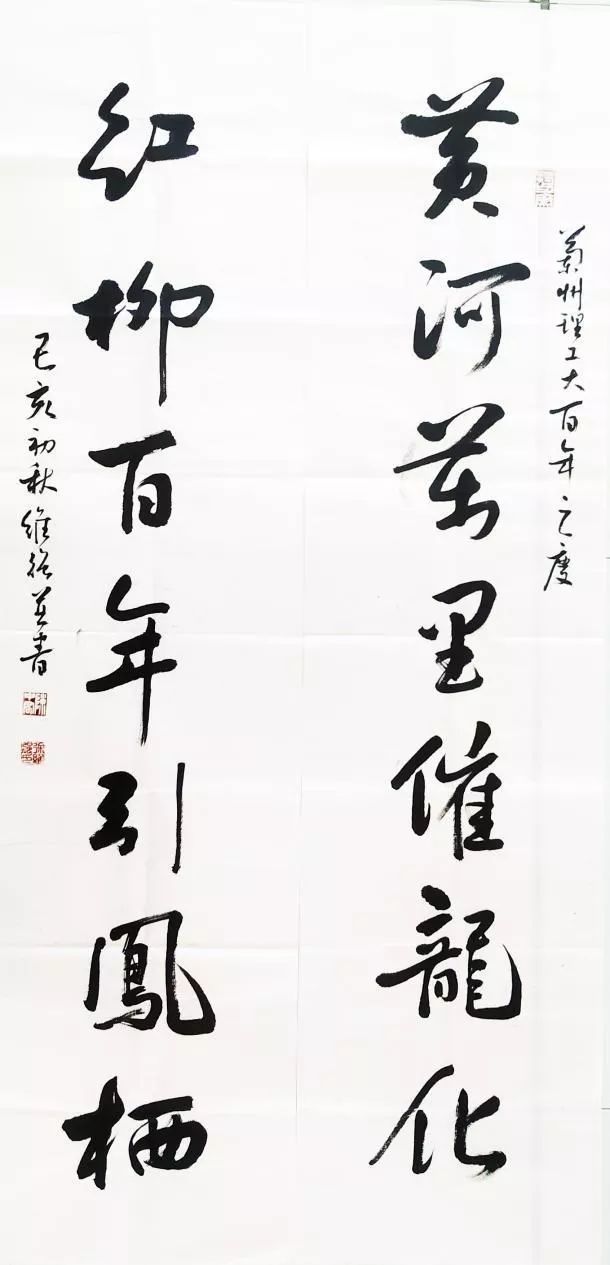 蘭州理工大百年之慶
黄河萬里催龍化
紅柳百年引鳳栖
己亥初秋維並書